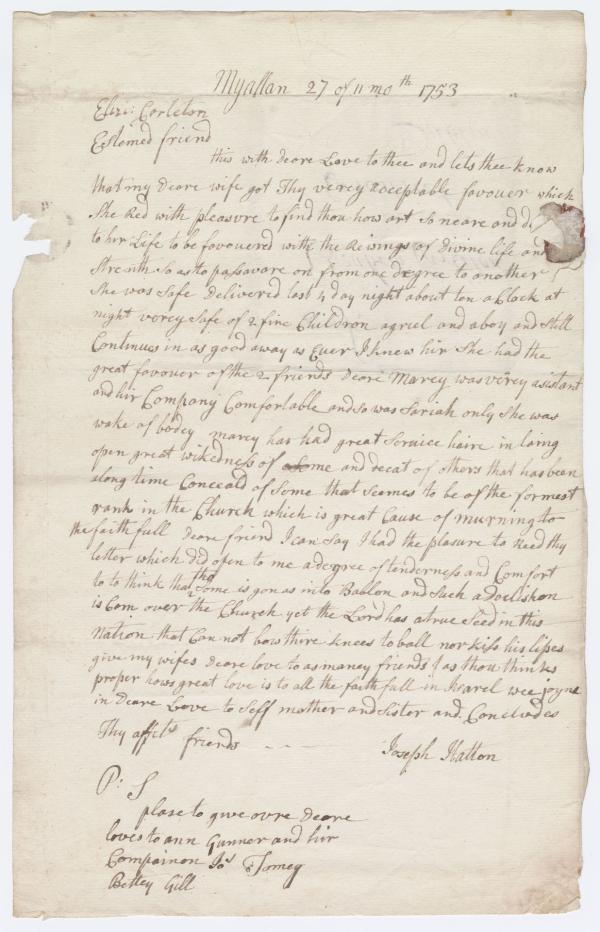 Myallan 27 of 11 mo th 1753
Eliz: Carleton
Estemed friend
this with deare Love to thee and lets thee know
that my Deare wife got Thy verey acceptable favouer which
She Red with pleasvre to find thou how art So neare and
to hir Life to be favouered with the of Divine life and
Strenth So as to pass on from one degree to another
She was Safe Delivered last 4 day night about ten a Clock at
night verey Safe of 2 fine Children a and a boy and Still
Continues in as good away as Euer I knew hir She had the
great favouer of the 2 friends Deare Marcy was verey asistant
and hir Company Comfortable and so was Sariah only She was
wake of bodey marcy has had great Service haire in laing
open great wikedness of some and decat of others that has been
along time Conceald of Some that Seames to be of the formest
rank in the Church which is great Cause of murning to
the faithfull Deare friend I can Say I had the plasure to Reed thy
letter which did open to me a degree of tenderness and Comfort
to to think tha tho Some is gon as into Bablon and Such a
is Com over the Church yet the Lord has a true Seed in this
Nation that Can not bow thire knees to ball nor kiss his lipes
give my wifes Deare love to as maney friends as thou thinkes
proper hows great love is to all the faithfull in Isarel wee joyne
in Deare Love to Self mother and Sister and Concludes
Thy affct friends
Joseph Hatton
P: S
plase to give ovre Deare
loves to ann Gunner and hir
Compainon Jos
Bettey Gill